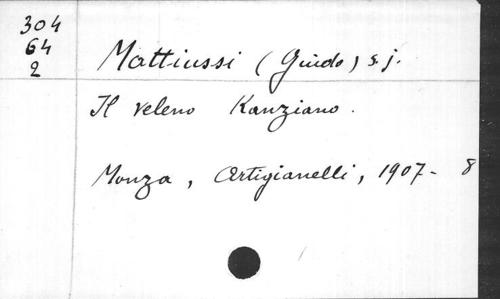 304
64
2
Mattiussi (Guido) s. j.
Il veleno Kanziano.
Monza, Artigianelli, 1907- 8